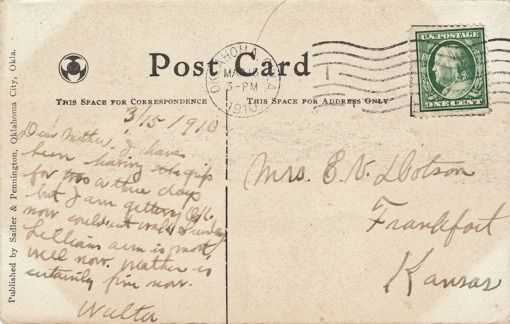 Post Card
OKLAHOMA
3-PM
1910
U.S. POSTAGE
ONE CENT
THIS SPACE FOR CORRESPONDENCE
THIS SPACE FOR ADDRESS ONLY
Published by Sadler & Pennington, Oklahoma City, Okla.
3/15 1910
Dear Mother, I have
been having the grip
for two or three days
but I am getting O.K.
now could not write Sunday
Lillians arm is most
well now. Weather is
certainly fine now.
Walta
Mrs. E. V. Dotson
Frankfort
Kansas